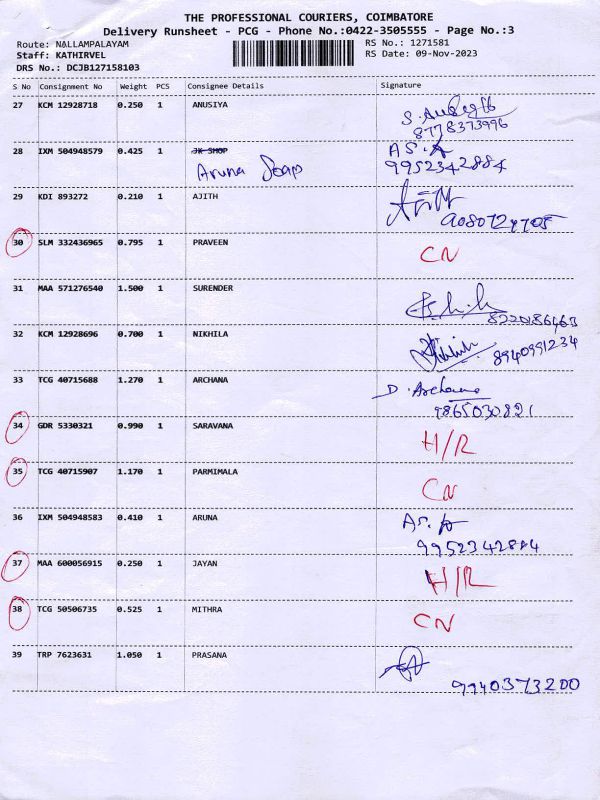 THE PROFESSIONAL COURIERS, COIMBATORE
Delivery Runsheet - PCG - Phone No.:0422-3505555 - Page No.:3
Route: NALLAMPALAYAM RS No.: 1271581
Staff: KATHIRVEL RS Date: 09-Nov-2023
DRS No.: DCJB127158103
S No Consignment No Weight PCS Consignee Details Signature
27 KCM 12928718 0.250 1 ANUSIYA
8778373996
28 IXM 504948579 0.425 1 JK SHOP AS.A
Aruna Soap 9952342884
29 KDI 893272 0.210 1 AJITH Ajith
30 SLM 332436965 0.795 1 PRAVEEN CN
31 MAA 571276540 1.500 1 SURENDER
8220186463
32 KCM 12928696 0.700 1 NIKHILA 8940991234
33 TCG 40715688 1.270 1 ARCHANA D. Archana
9865030821
34 GDR 5330321 0.990 1 SARAVANA H/R
35 TCG 40715907 1.170 1 PARMIMALA CN
36 IXM 504948583 0.410 1 ARUNA AS.A
9952342884
37 MAA 600056915 0.250 1 JAYAN H/R
38 TCG 50506735 0.525 1 MITHRA CN
39 TRP 7623631 1.050 1 PRASANA
9940373200